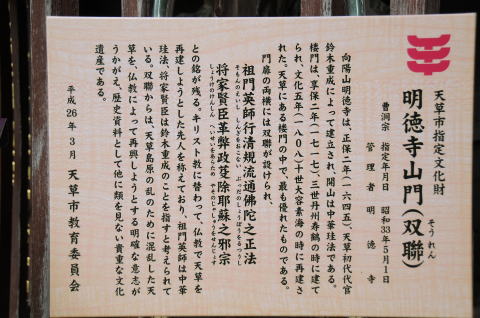 天草市指定文化財
明徳寺山門(双聯)
そうれん
曹洞宗 指定年月日 昭和33年5月1日
管理者 明徳寺
向陽山明徳寺は、正保二年(一六四五)、天草初代代官
鈴木重成によって建立され、開山は中華珪法である。
楼門は、享保二年(一七一七)、三世丹州寿鶴の時に建て
られ、文化五年(一八〇八)十世大容素海の時に再建さ
れた。天草にある楼門の中で、最も優れたものである。
門扉の両横には双聯が設けられ、
祖門英師行清規流通佛陀之正法
将家賢臣革弊政芟除耶蘇之邪宗
との銘が残る。キリスト教に替わって、仏教で天草を
再建しようとした先人を称えており、祖門英師は中華
珪法、将家賢臣は鈴木重成のことを指すと考えられて
いる。双聯からは、天草島原の乱のために混乱した天
草を、仏教によって再興しようとする明確な意志が
うかがえ、歴史資料として他に類を見ない貴重な文化
遺産である。
平成26年3月 天草市教育委員会